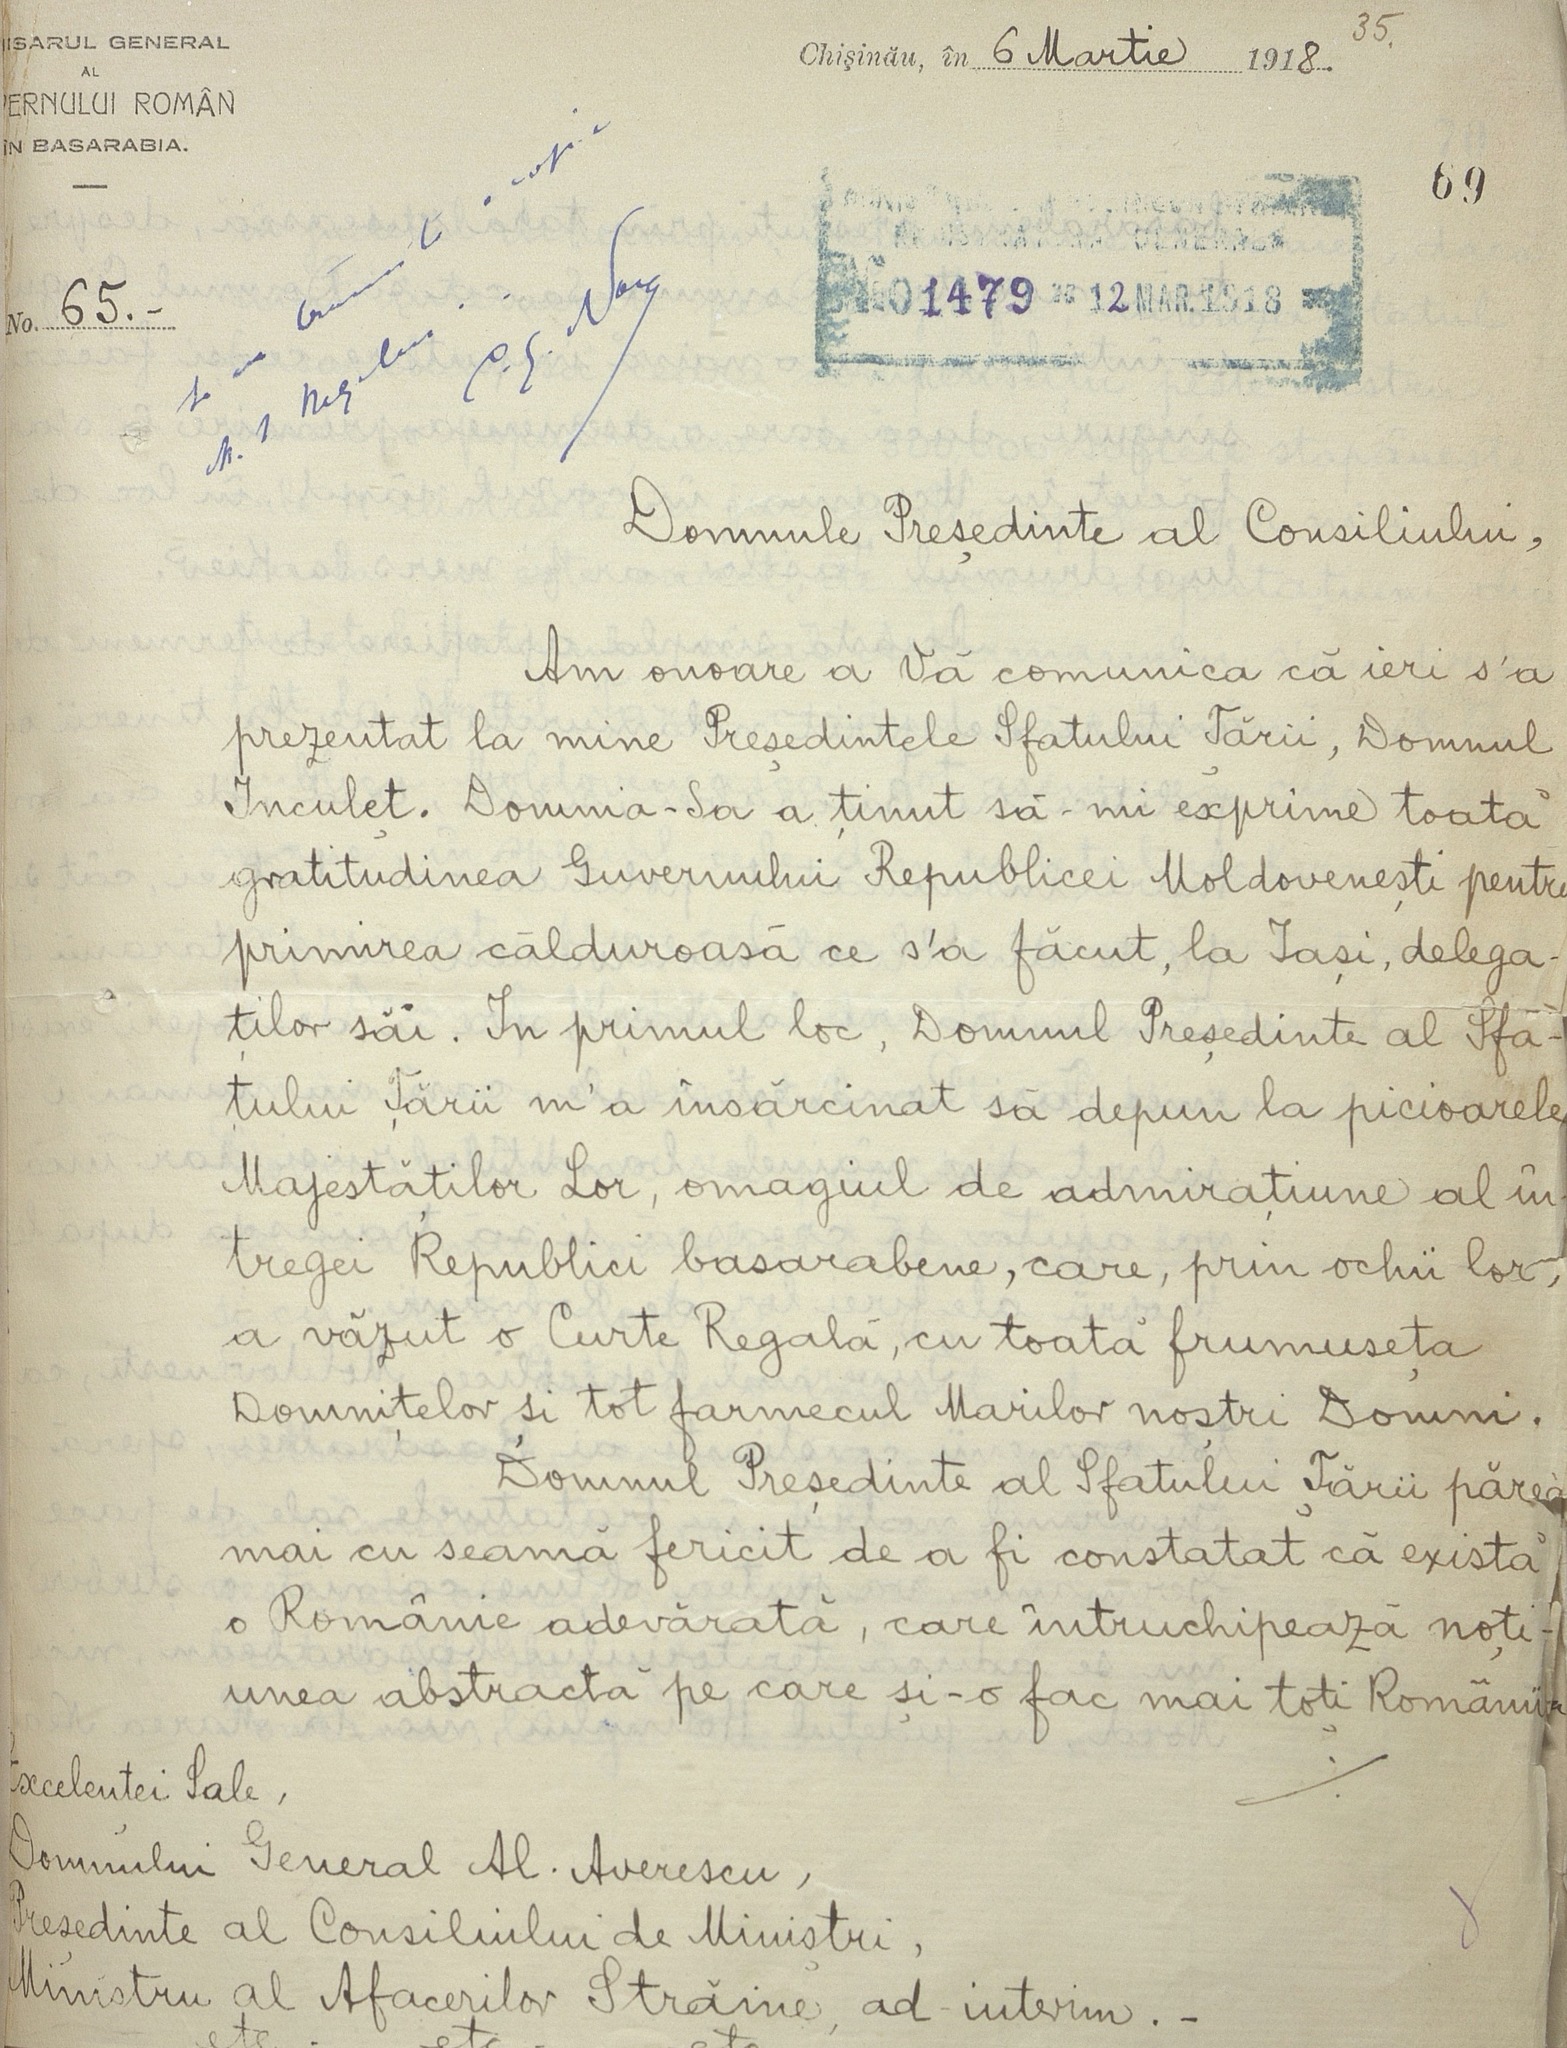 ISARUL GENERAL
AL
ERNULUI ROMÂN
ÎN BASARABIA.
Chișinău, în 6 Martie 1918.
35.
69
No. 65.-
No 01479 12 MAR. 1918
Domnule Președinte al Consiliului,
Am onoare a Vă comunica că ieri s'a
prezentat la mine Președintele Sfatului Țării, Domnul
Inculeț. Domnia-Sa a ținut să-mi exprime toată
gratitudinea Guvernului Republicei Moldovenești pentru
primirea călduroasă ce s'a făcut, la Iași, delega-
ților săi. In primul loc, Domnul Președinte al Sfa-
țului Țării m'a însărcinat să depun la picioarele
Majestăților Lor, omagiul de admirațiune al în-
tregei Republici basarabene, care, prin ochii lor,
a văzut o Curte Regală, cu toată frumusețea
Domnițelor și tot farmecul Marilor noștri Domni.
Domnul Președinte al Sfatului Țării părea
mai cu seamă fericit de a fi constatat că există
o Românie adevărată, care întruchipează noți-
unea abstractă pe care și-o fac mai toți Românii
./.
Excelenței Sale,
Domnului General Al. Averescu,
Președinte al Consiliului de Miniștri,
Ministru al Afacerilor Străine, ad-interim.-
etc. etc. etc.